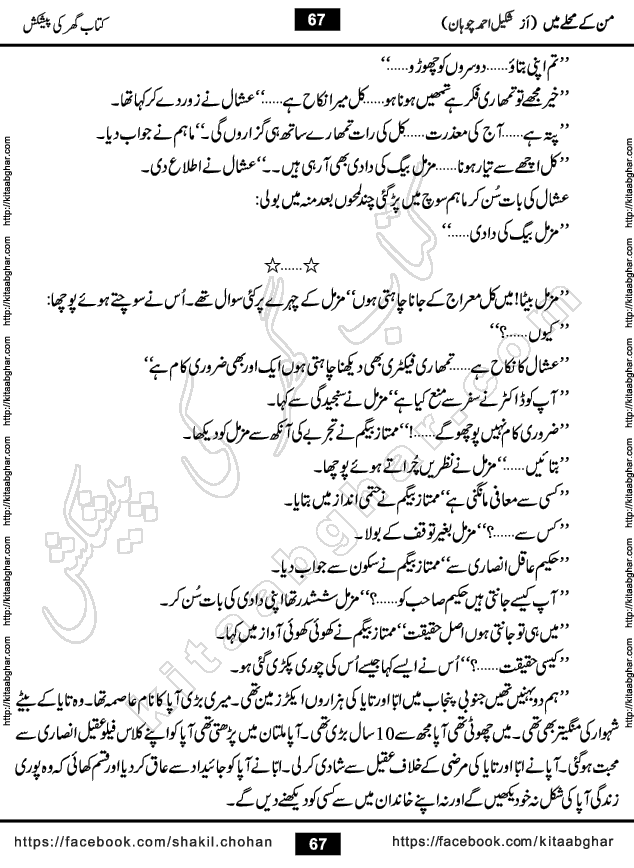 من کے محلے میں (از شکیل احمد چوہان)
67
کتاب گھر کی پیشکش
’’تم اپنی بتاؤ......دوسروں کو چھوڑو......‘‘
’’خیر مجھے تو تمھاری فکر ہے تمھیں ہونا ہو......کل میرا نکاح ہے......‘‘عشال نے زور دے کر کہا تھا۔
’’پتہ ہے......آج کی معذرت......کل کی رات تمھارے ساتھ ہی گزاروں گی۔‘‘ماہم نے جواب دیا۔
’’کل اچھے سے تیار ہونا......مزمل بیگ کی دادی بھی آرہی ہیں۔۔‘‘عشال نے اطلاع دی۔
عشال کی بات سُن کر ماہم سوچ میں پڑ گئی چند لمحوں بعد منہ میں بولی:
’’مزمل بیگ کی دادی......‘‘
☆......☆
’’مزمل بیٹا! میں کل معراج کے جانا چاہتی ہوں‘‘مزمل کے چہرے پر کئی سوال تھے۔ اُس نے سوچتے ہوئے پوچھا:
’’کیوں......؟‘‘
’’عشال کا نکاح ہے......تمھاری فیکٹری بھی دیکھنا چاہتی ہوں ایک اور بھی ضروری کام ہے‘‘
’’آپ کو ڈاکٹر نے سفر سے منع کیا ہے‘‘مزمل نے سنجیدگی سے کہا۔
’’ضروری کام نہیں پوچھو گے......!‘‘ممتاز بیگم نے تجربے کی آنکھ سے مزمل کو دیکھا۔
’’بتائیں......‘‘مزمل نے نظریں چُراتے ہوئے پوچھا۔
’’کسی سے معافی مانگنی ہے‘‘ممتاز بیگم نے حتمی انداز میں بتایا۔
’’کس سے......؟‘‘مزمل بغیر توقف کے بولا۔
’’حکیم عاقل انصاری سے‘‘ممتاز بیگم نے سکون سے جواب دیا۔
’’آپ کیسے جانتی ہیں حکیم صاحب کو......؟‘‘مزمل ششدر تھا اپنی دادی کی بات سُن کر۔
’’میں ہی تو جانتی ہوں اصل حقیقت‘‘ممتاز بیگم نے کھوئی کھوئی آواز میں کہا۔
’’کیسی حقیقت......؟‘‘اُس نے ایسے کہا جیسے اُس کی چوری پکڑی گئی ہو۔
’’ہم دو بہنیں تھیں جنوبی پنجاب میں ابّا اور تایا کی ہزاروں ایکڑ زمین تھی۔ میری بڑی آپا کا نام عاصمہ تھا۔ وہ تایا کے بیٹے
شہوار کی منگیتر بھی تھی۔ میں چھوٹی تھی آپا مجھ سے 10 سال بڑی تھی۔ آپا ملتان میں پڑھتی تھی آپا کو اپنے کلاس فیلو عقیل انصاری سے
محبت ہو گئی۔ آپا نے ابّا اور تایا کی مرضی کے خلاف عقیل سے شادی کر لی۔ ابّا نے آپا کو جائیداد سے عاق کر دیا اور قسم کھائی کہ وہ پوری
زندگی آپا کی شکل نہ خود دیکھیں گے اور نہ اپنے خاندان میں سے کسی کو دیکھنے دیں گے۔
کتاب گھر کی پیشکش
kitaabghar.com
http://kitaabghar.com http://kitaabghar.com http://kitaabghar.com http://kitaabghar.com http://kitaabghar.com http://kitaabghar.com
http://kitaabghar.com http://kitaabghar.com http://kitaabghar.com http://kitaabghar.com http://kitaabghar.com http://kitaabghar.com
https://facebook.com/shakil.chohan
67
https://facebook.com/kitaabghar